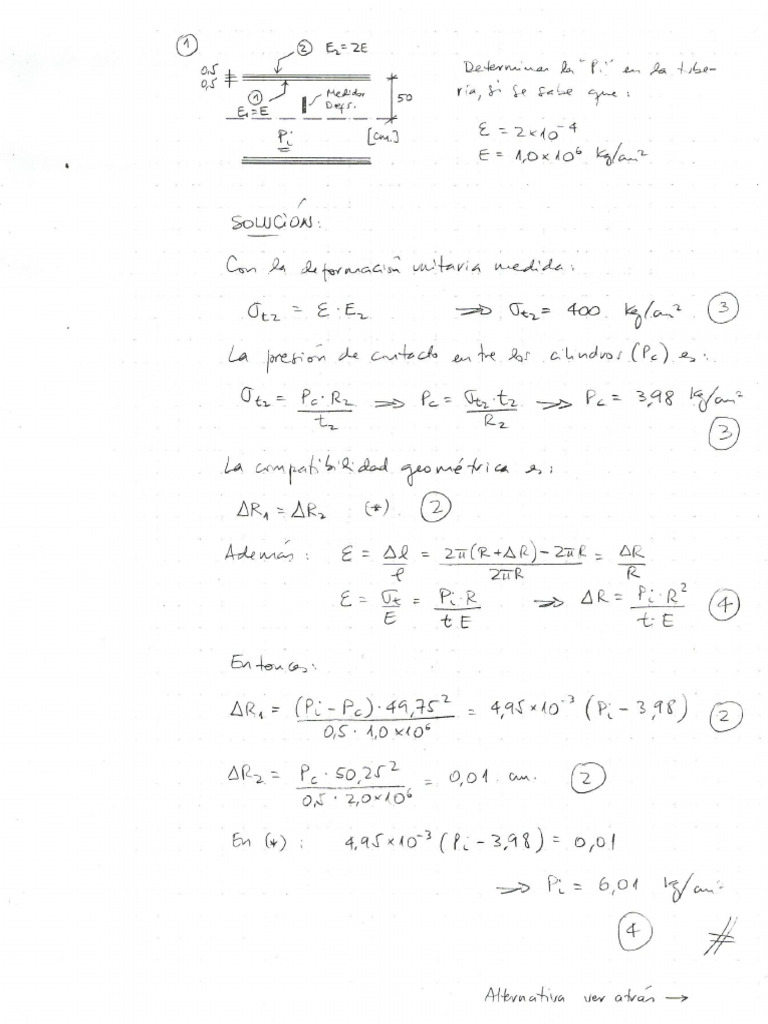 ①
② E₂ = 2E
0,5
0,5
①
E₁ = E
Medidor
Defs.
50
Pi
[cm.]
Determinar la "Pi" en la tube-
ría, si se sabe que:
ε = 2×10⁻⁴
E = 1,0×10⁶ kg/cm²
SOLUCIÓN:
Con la deformación unitaria medida:
σt₂ = ε·E₂ ⇒ σt₂ = 400 kg/cm² ③
La presión de contacto entre los cilindros (Pc) es:
σt₂ = Pc·R₂/t₂ ⇒ Pc = σt₂·t₂/R₂ ⇒ Pc = 3,98 kg/cm²
③
La compatibilidad geométrica es:
ΔR₁ = ΔR₂ (*) ②
Además: ε = Δl/l = 2π(R+ΔR)-2πR/2πR = ΔR/R
ε = σt/E = Pi·R/t·E ⇒ ΔR = Pi·R²/t·E ④
Entonces:
ΔR₁ = (Pi - Pc)·49,75²/0,5·1,0×10⁶ = 4,95×10⁻³ (Pi - 3,98) ②
ΔR₂ = Pc·50,25²/0,5·2,0×10⁶ = 0,01 cm. ②
En (*): 4,95×10⁻³ (Pi - 3,98) = 0,01
⇒ Pi = 6,01 kg/cm²
④ #
Alternativa ver atrás →